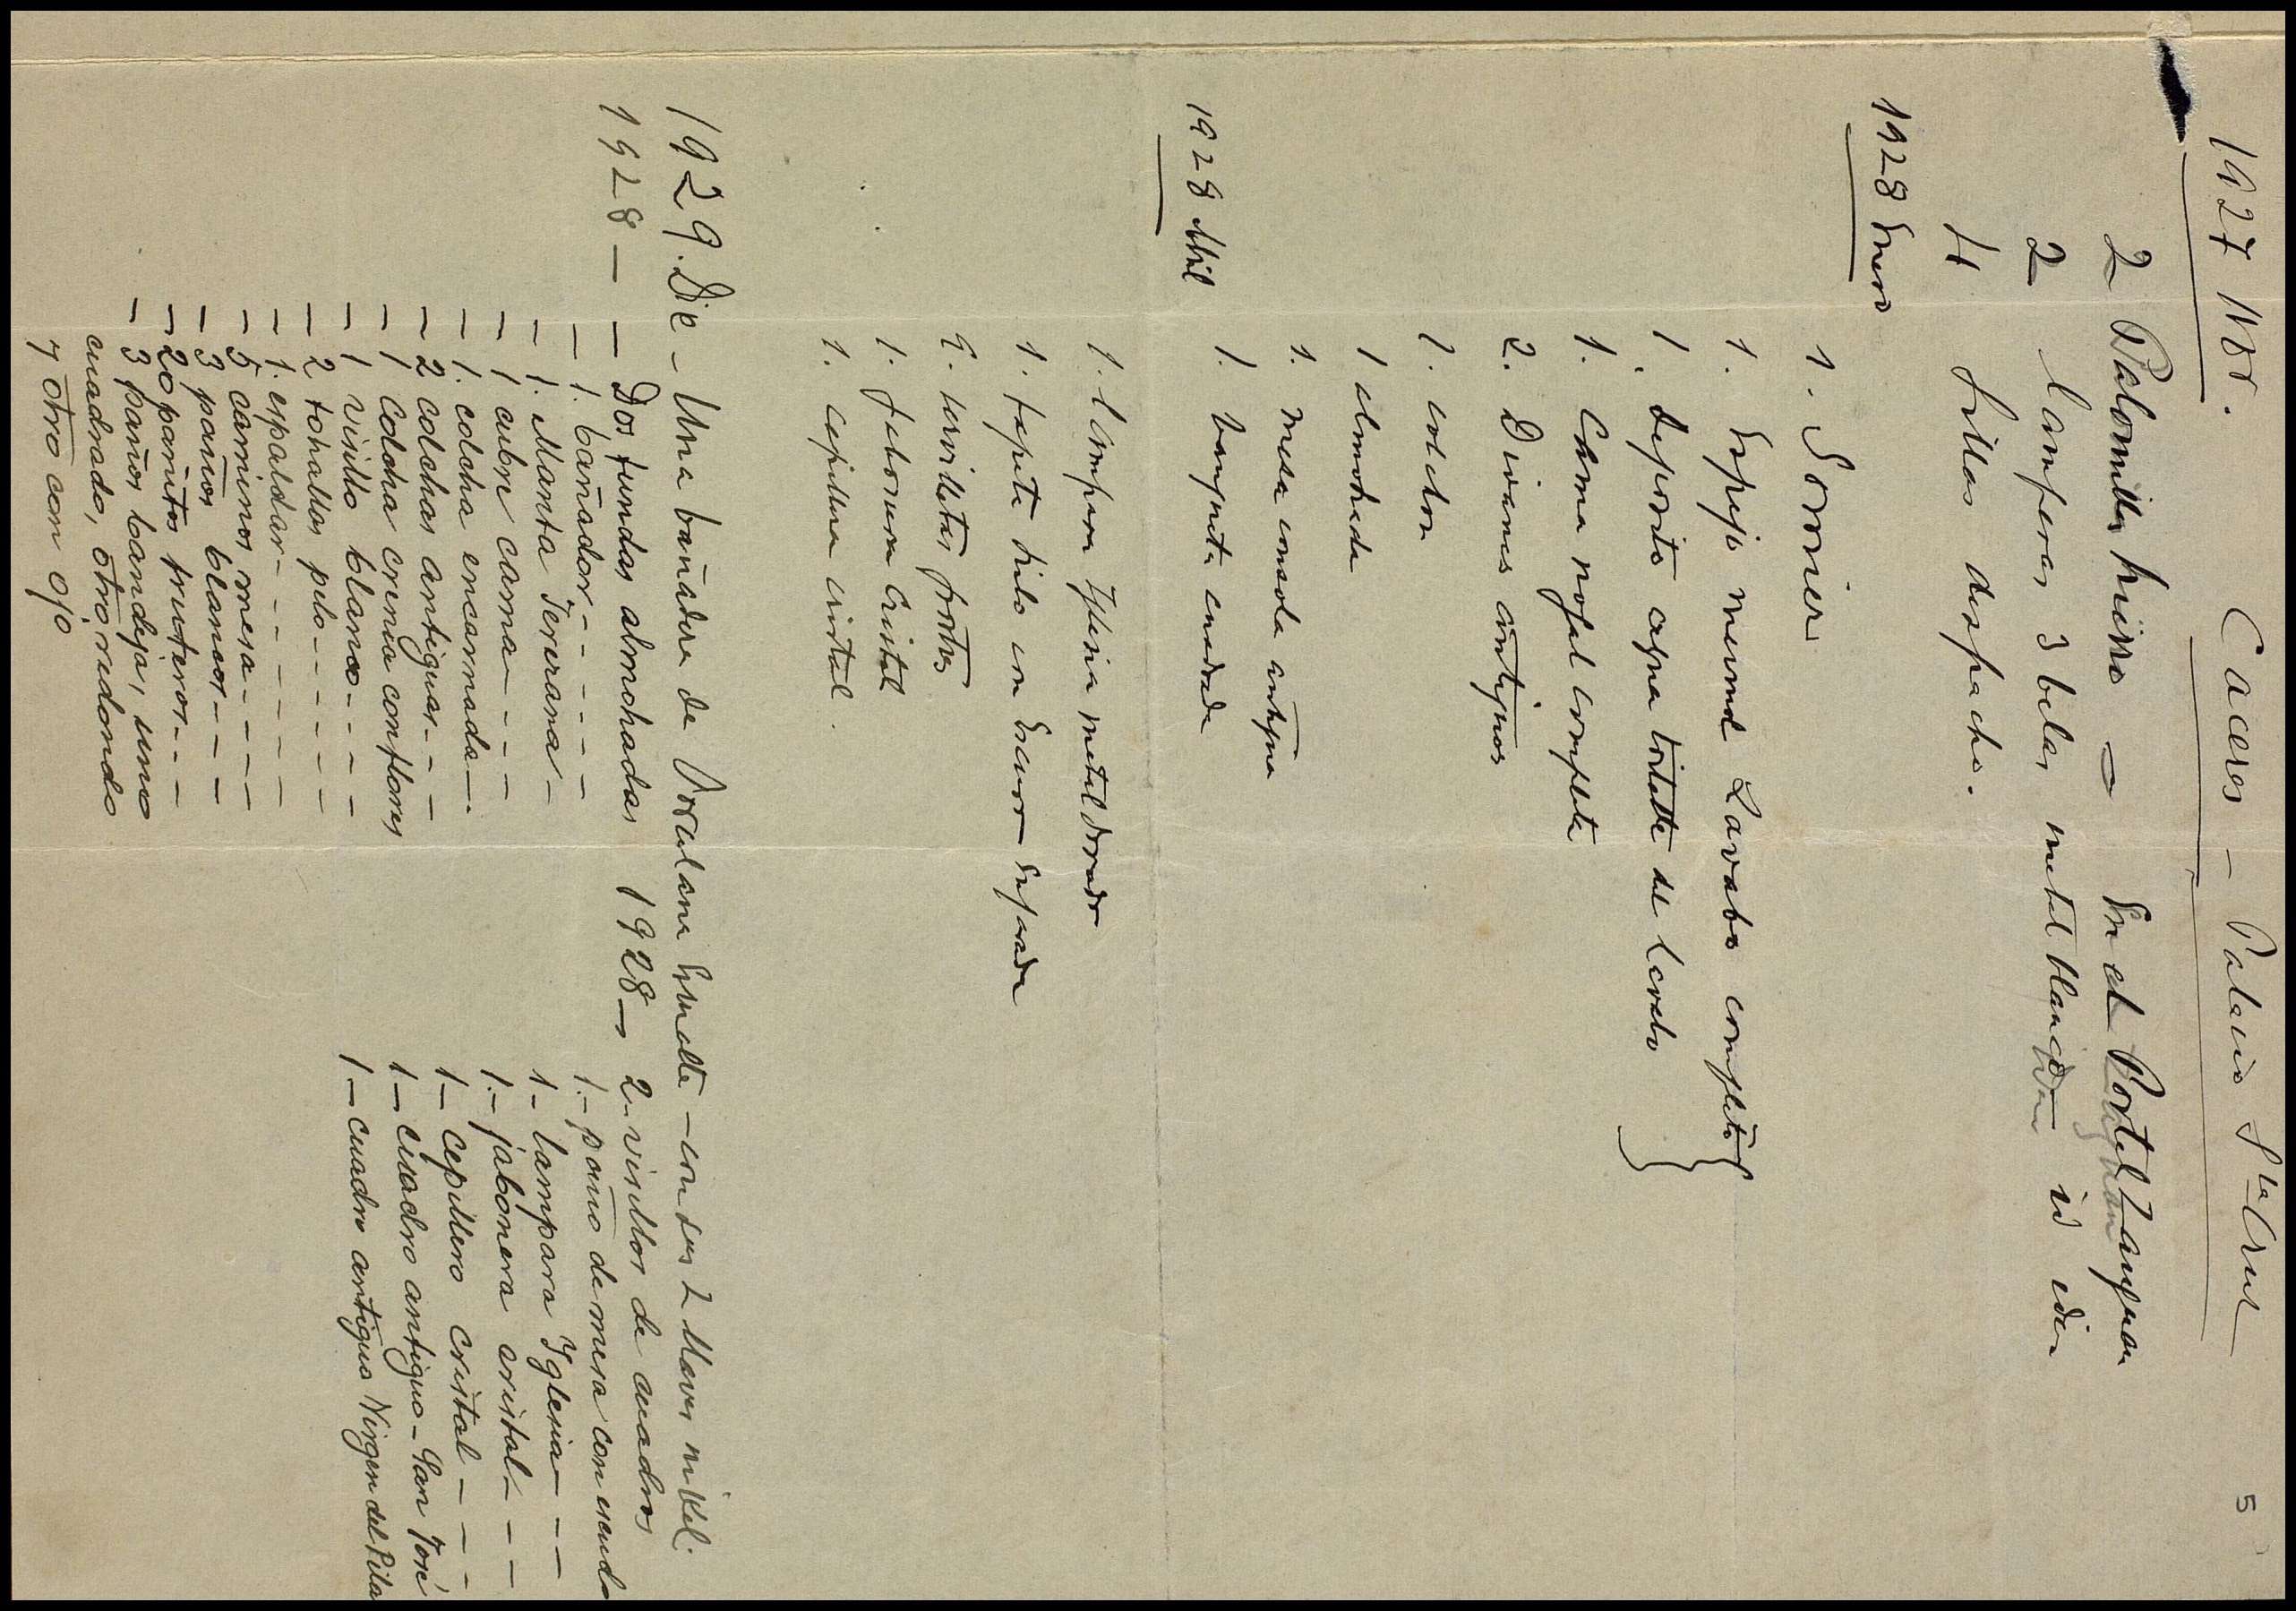 5
Caceres - Palacio Sta Cruz
1927 Nov.
2 Palomillas hierro — En el Portal Zaguan
2 lamparas 3 belas metal blanco id idn
4 sillas despacho.
1928 Enero
1. Somier
1. Espejo Lavabo completo
1. deposito agua tortatte del lavabo
1. Cama nogal completa
2. Divanes antiguos
1. colchon
1 almohada
1. mesa consola antigua
1. banqueta cuadrada
1928 Abril
1. lampara Iglesia metal dorado
1. tapete hilo con Encaxe
9. servilletas
1. Jabonera cristal
1. cepillera cristal.
1929. Dic - Una bañadera de Porcelana Esmalte - con sus 2 llaves nikel.
1928 — — Dos fundas almohadas
— 1. bañador - - - - -
— 1. Manta Jerezana -
— 1 cubre cama - - - -
— 1. colcha encarnada —.
— 2 colchas antiguas - - -
— 1 Colcha crema con flores
— 1 visillo blanco - - - -
— 2 tohallas pelo - - - - -
— 1. espaldar - - - - - -
— 5 caminos mesa - - - -
— 3 paños blancos - - -
— 20 pañitos fruteros - - -
— 3 paños bandeja, uno
cuadrado, otro redondo
y otro con o/o
1928 — 2 - visillos de cuadros
1. - paño de mesa con escudo
1 - lampara Iglesia - - -
1. - jabonera cristal - - -
1 - cepillero cristal - - -
1 — cuadro antiguo - San José
1 — cuadro antiguo Virgen del Pilar